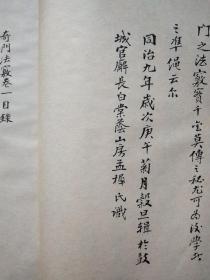 門之法竅實千金莫傳之秘尤可為後學者
之準繩云尔
同治九年歲次庚午菊月穀旦緝於鼓
城官廨長白棠蔭山房孟樨氏識
奇門法竅卷一目錄